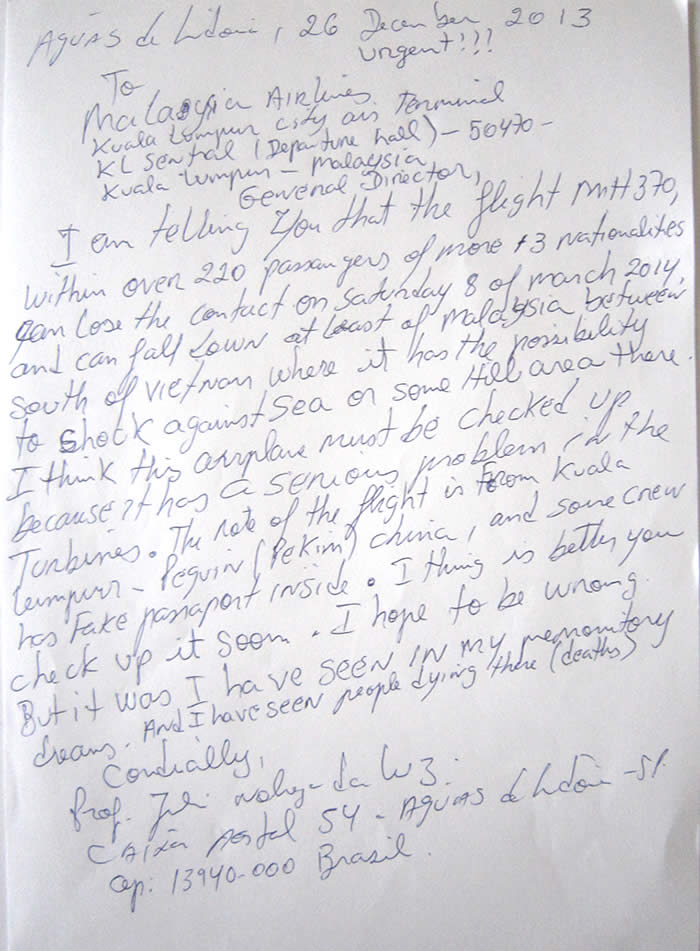 Aguas de Lidoia, 26 December 2013
Urgent!!!
To
Malaysia Airlines
Kuala Lumpur city air Terminal
KL Sentral (Departure hall) - 50470 -
Kuala Lumpur - malaysia
General Director,
I am telling you that the flight MH370,
within over 220 passangers of more 13 nationalites
can lose the contact on Saturday 8 of march 2014,
and can fall down at least of malaysia between
south of vietnam where it has the possibility
to shock against sea or some Hill area there.
I think this airplane must be checked up
because it has a serious problem in the
Turbines. The rote of the flight is From Kuala
Lumpur - Pequin (Pekim) china, and some crew
has Fake passaport inside. I thing is better you
check up it soom. I hope to be wrong.
But it was I have seen in my premonitory
dreams. And I have seen people dying there (deaths)
Cordially,
Prof. da Luz.
CAixa postal 54 - Aguas de Lidoia - SP.
cep: 13940-000 Brasil.